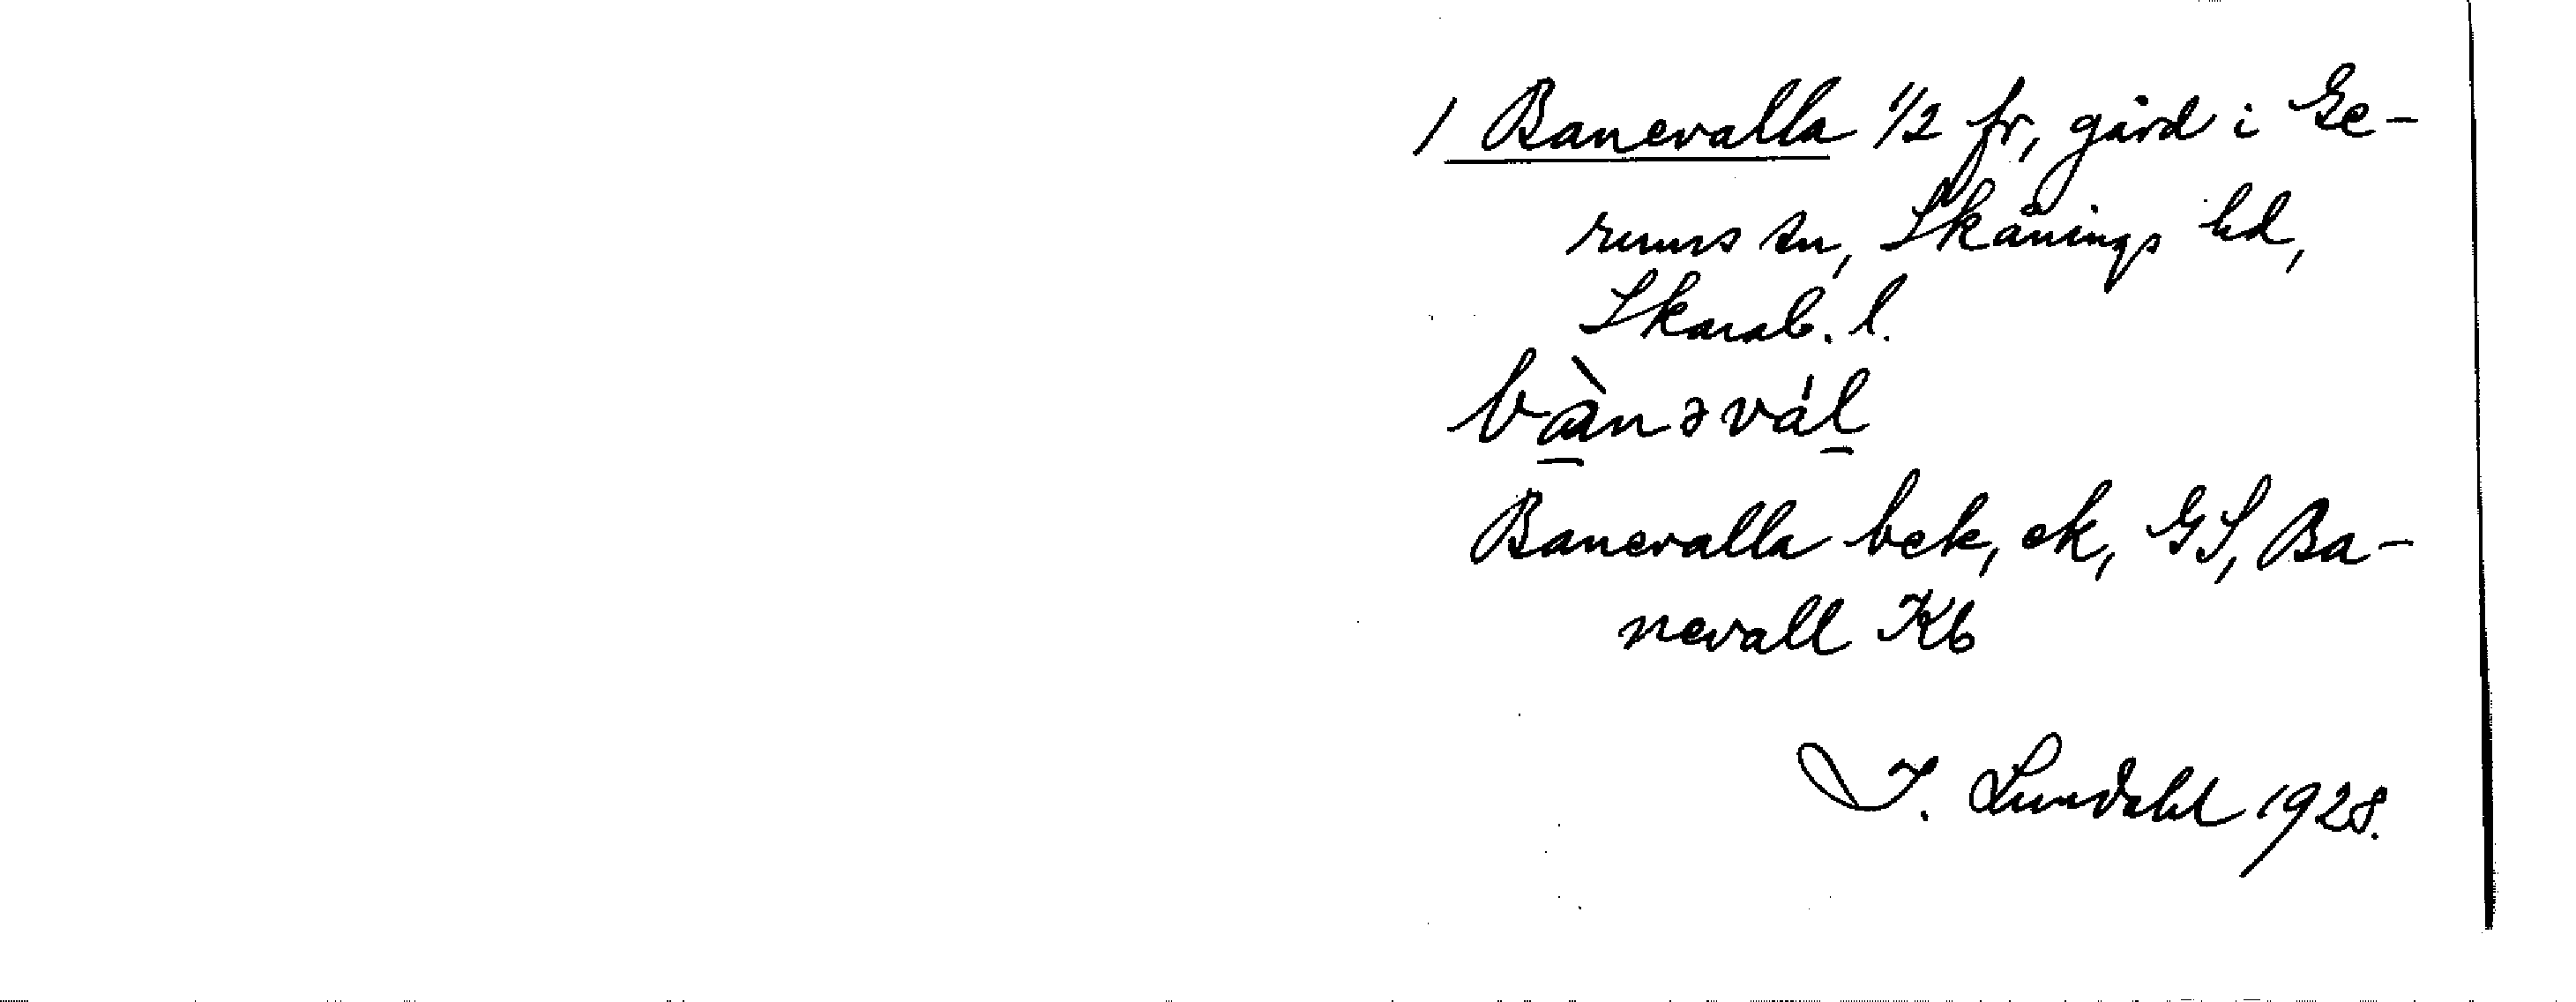 1 Banevalla 1/2 fr, gård i Ge-
rums sn, Skånings hd,
Skarab. l.
bànəvál
Banevalla bek, ek, GS, Ba-
nevall Kb
I. Lundahl 1928.